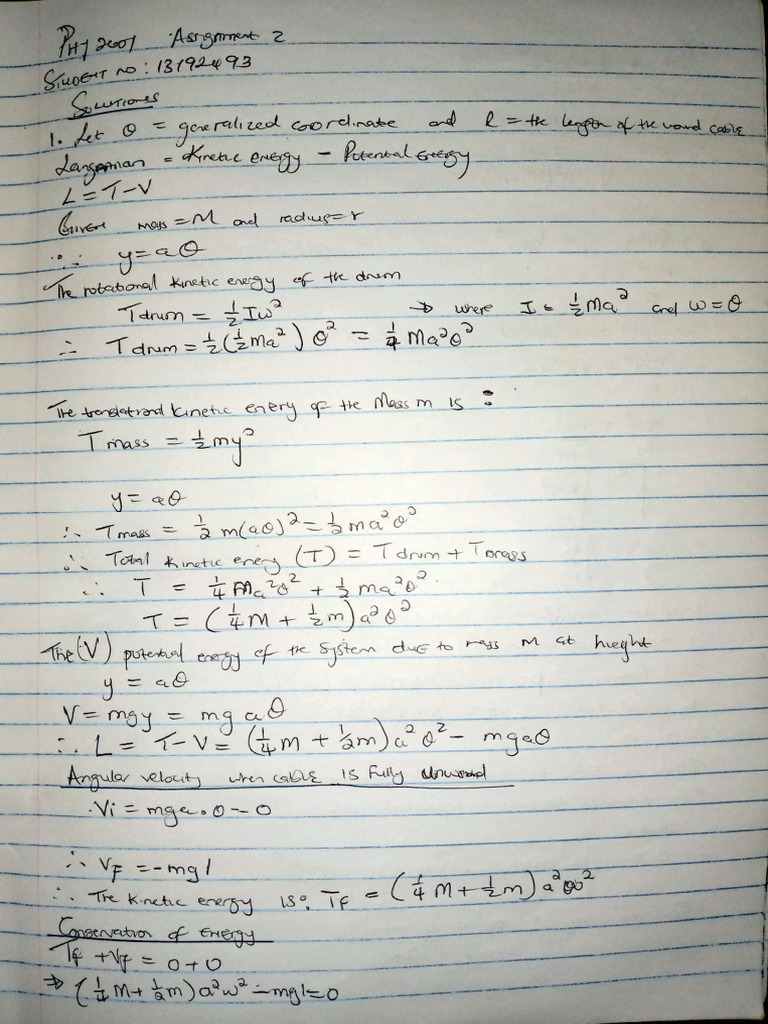 PHY 2001 Assignment 2
STUDENT NO: 13192493
SOLUTIONS
1. Let θ = generalized coordinate and l = the length of the wound cable
Langranian = Kinetic energy - Potential Energy
L = T-V
Given mass = M and radius = r
∴ y = aθ
The rotational kinetic energy of the drum
Tdrum = ½Iω² → where I = ½Ma² and ω = θ
∴ Tdrum = ½(½Ma²) θ² = ¼ Ma²θ²
The translational kinetic enery of the Mass m is :
Tmass = ½my²
y = aθ
∴ Tmass = ½ m(aθ)² = ½ma²θ²
∴ Total kinetic energy (T) = Tdrum + Tmass
∴ T = ¼Ma²θ² + ½ma²θ²
T = (¼M + ½m)a²θ²
The (V) potential energy of the system due to mass m at hieght
y = aθ
V = mgy = mg aθ
∴ L = T-V = (¼M + ½m) a²θ² - mgaθ
Angular velocity when cable is fully unwound
Vi = mga.0 - 0
∴ VF = -mgl
∴ The kinetic energy is: TF = (¼M + ½m) a²ω²
Conservation of Energy
Tf + Vf = 0 + 0
⇒ (¼M + ½m) a²ω² - mgl = 0